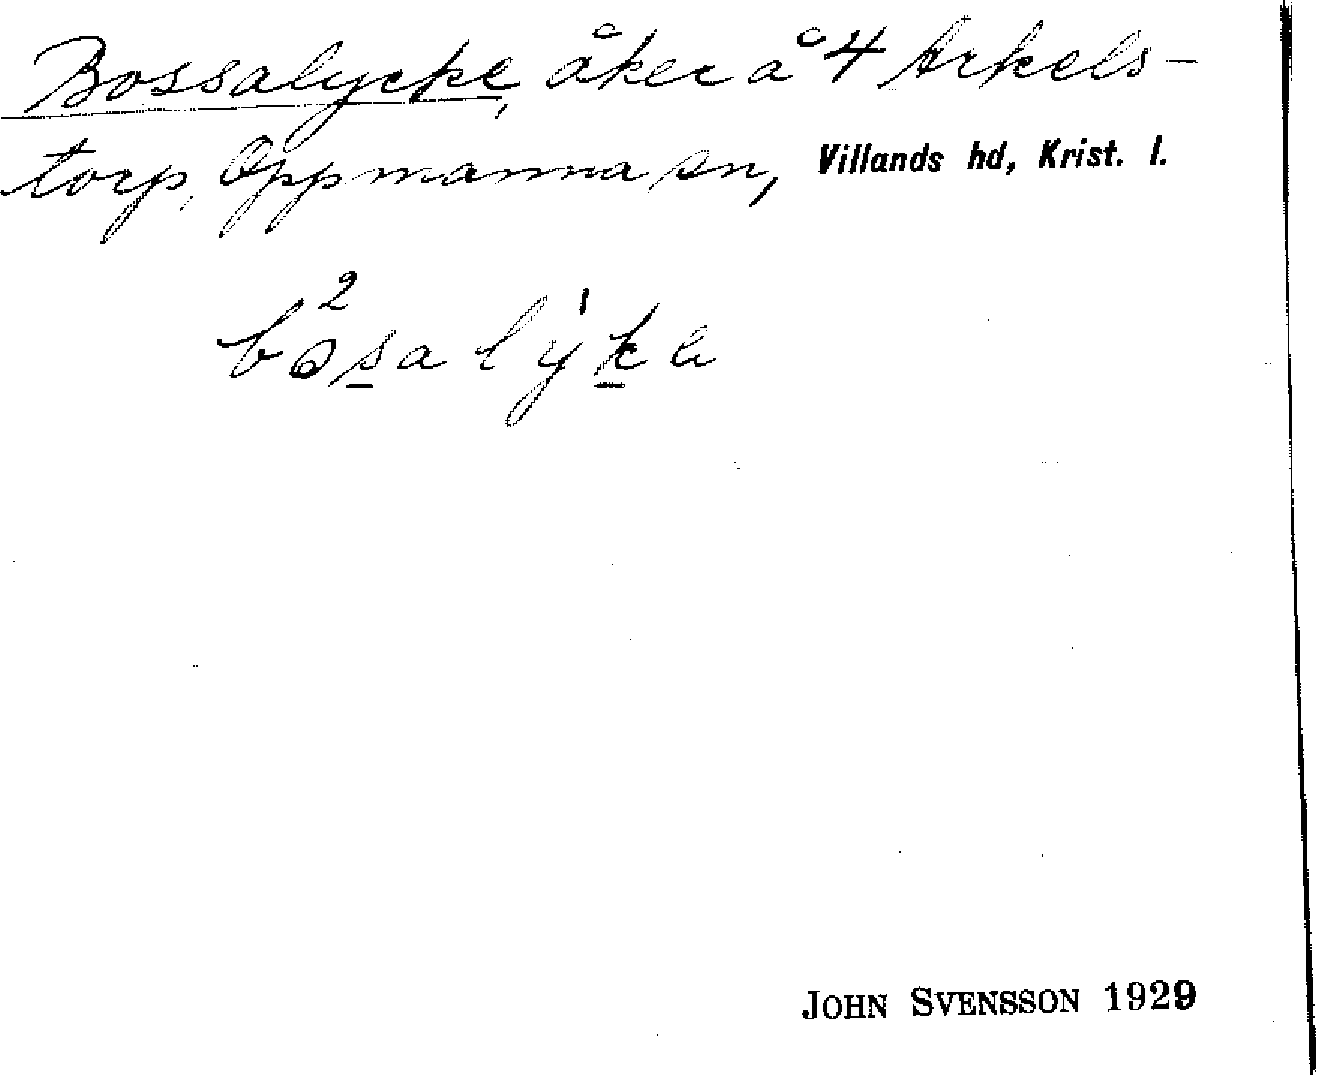 Bossalycke, åker å 4 Arkels-
torp, Oppmanna sn, Villands hd, Krist. l.
JOHN SVENSSON 1929